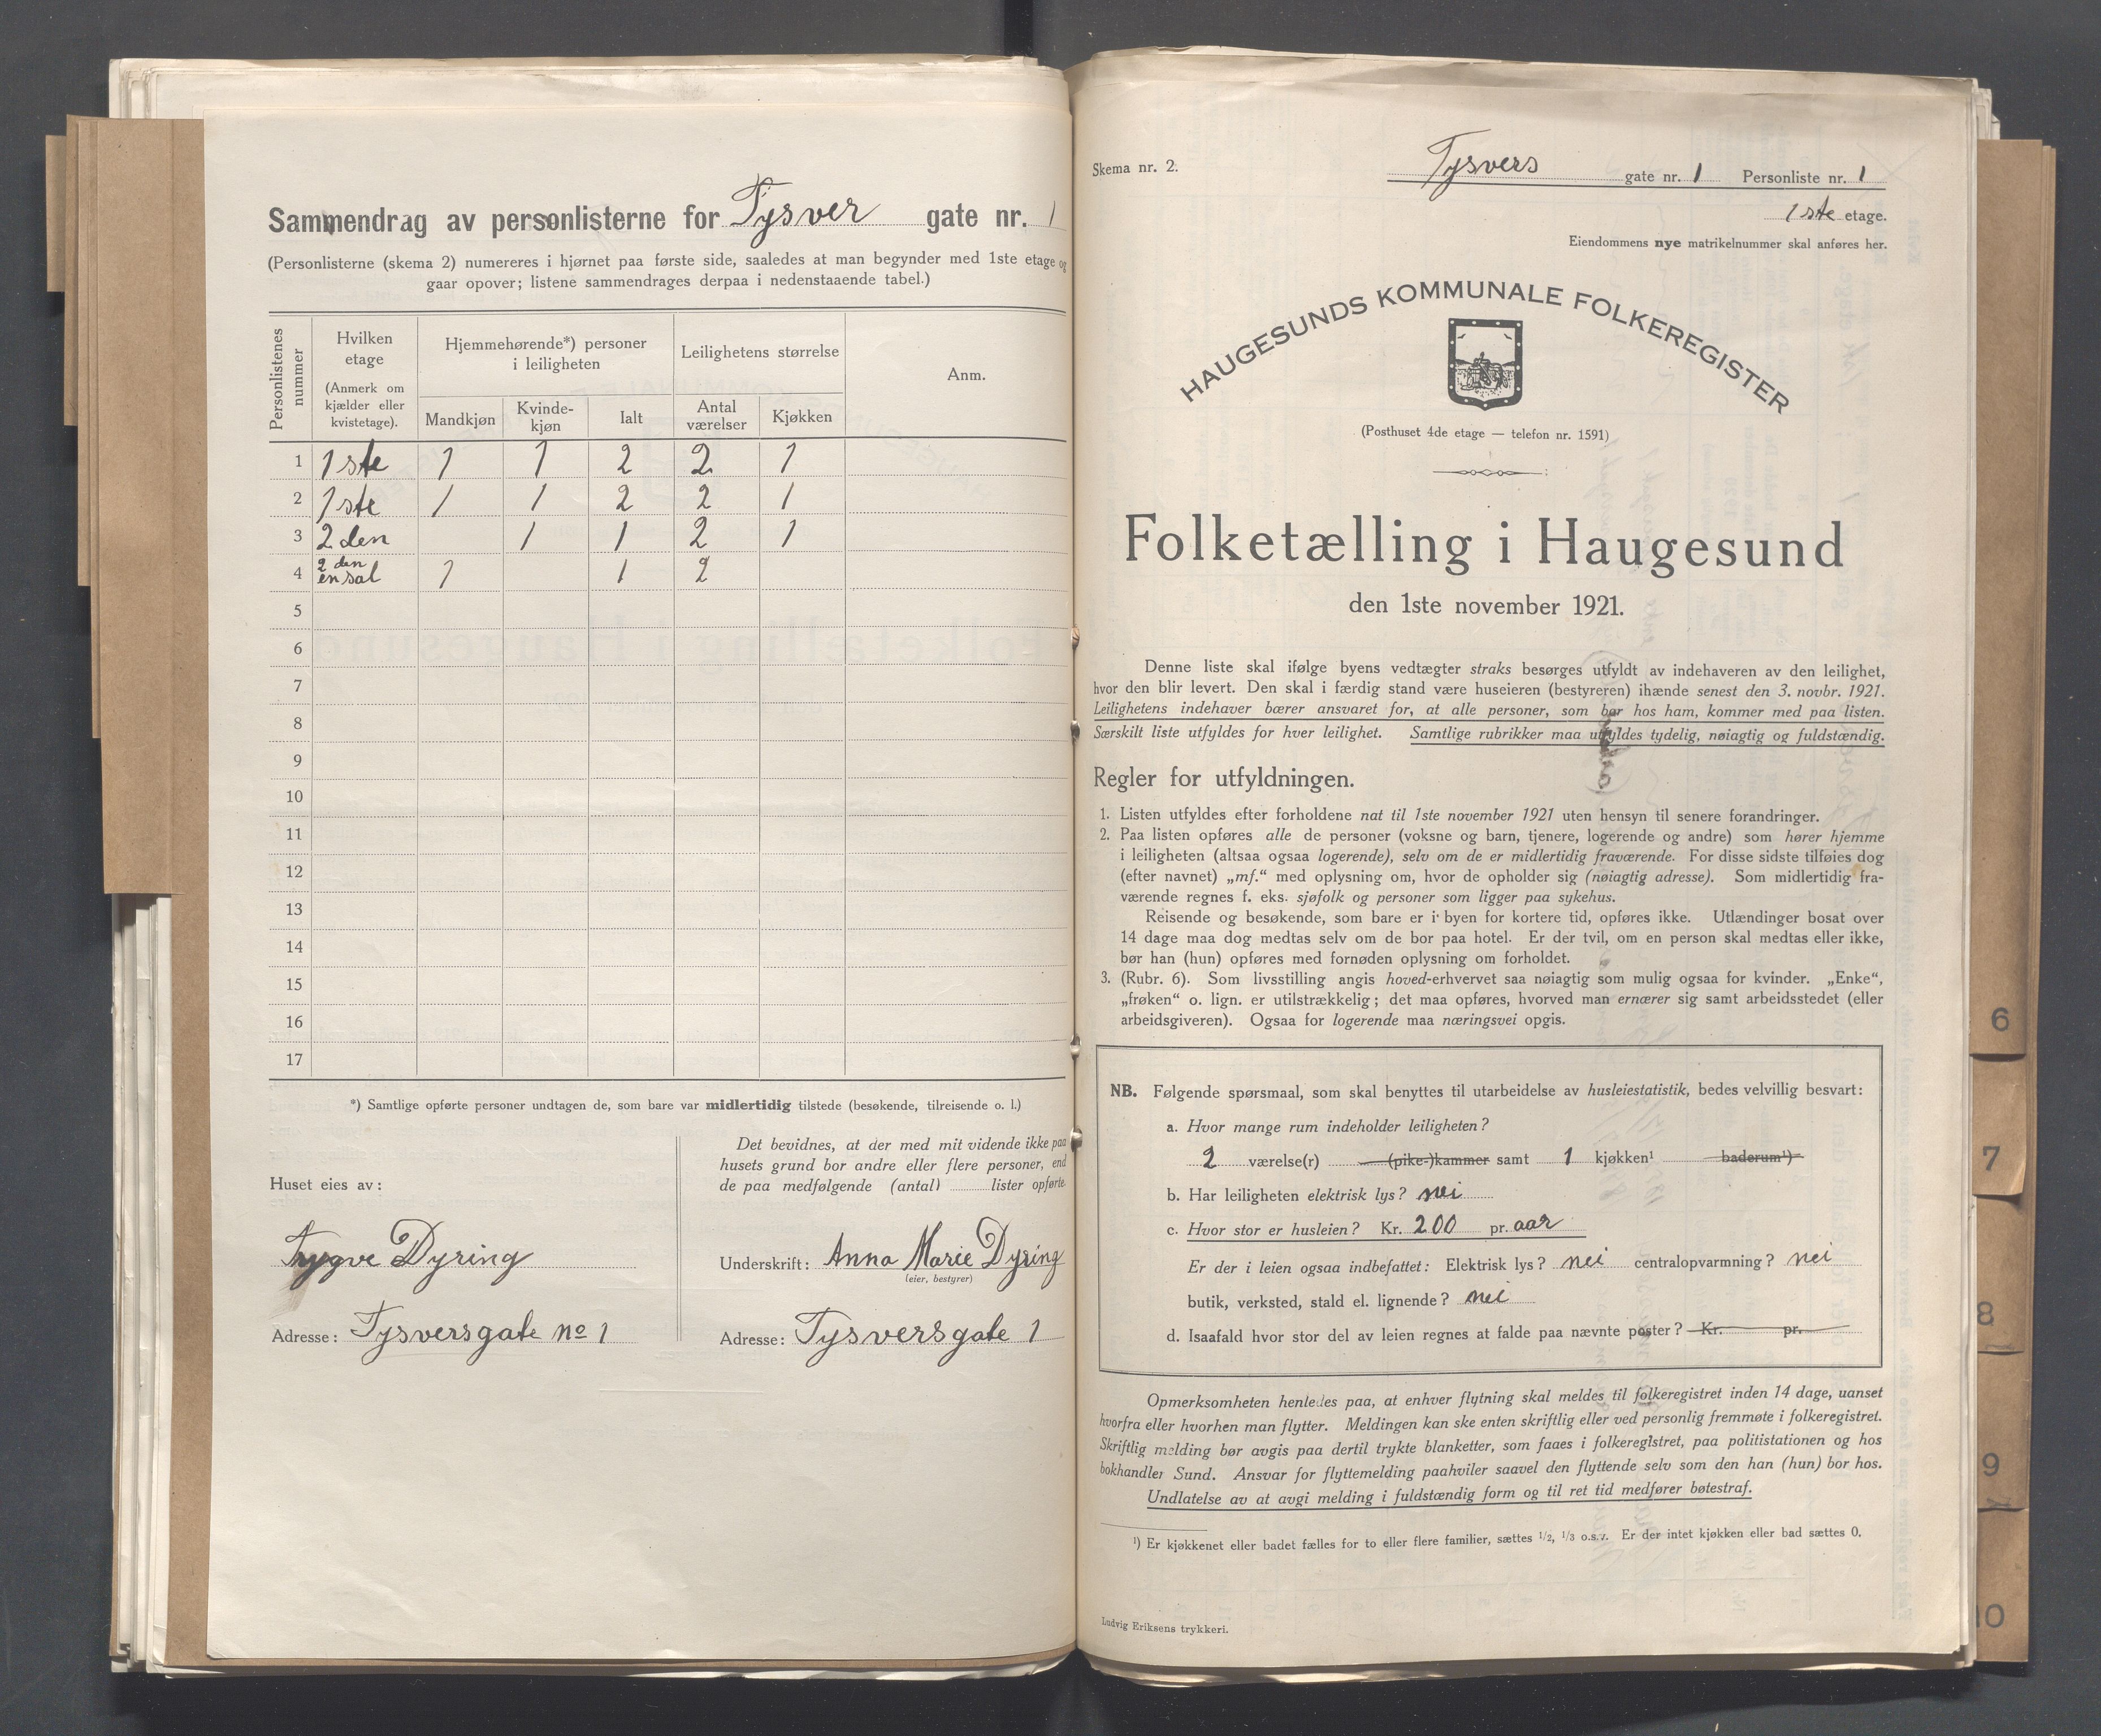 Sammendrag av personlisterne for Tysver gate nr. 1
(Personlisterne (skema 2) numereres i hjørnet paa første side, saaledes at man begynder med 1ste etage og
gaar opover; listene sammendrages derpaa i nedenstaaende tabel.)
Personlistenes nummer
Hvilken etage
(Anmerk om kjælder eller kvistetage).
Hjemmehørende*) personer i leiligheten
Leilighetens størrelse
Anm.
Mandkjøn Kvinde-kjøn Ialt Antal værelser Kjøkken
1 1ste 1 1 2 2 1
2 1ste 1 1 2 2 1
3 2den 1 1 2 1
4 2den en sal 1 1 2
5
6
7
8
9
10
11
12
13
14
15
16
17
*) Samtlige opførte personer undtagen de, som bare var midlertidig tilstede (besøkende, tilreisende o. l.)
Huset eies av:
Trygve Dyring
Adresse: Tysversgate no 1
Det bevidnes, at der med mit vidende ikke paa
husets grund bor andre eller flere personer, end
de paa medfølgende (antal) lister opførte.
Underskrift: Anna Marie Dyring
(eier, bestyrer)
Adresse: Tysversgate 1
Skema nr. 2.
Tysvers gate nr. 1 Personliste nr. 1
1ste etage.
Eiendommens nye matrikelnummer skal anføres her.
HAUGESUNDS KOMMUNALE FOLKEREGISTER
(Posthuset 4de etage — telefon nr. 1591)
Folketælling i Haugesund
den 1ste november 1921.
Denne liste skal ifølge byens vedtægter straks besørges utfyldt av indehaveren av den leilighet,
hvor den blir levert. Den skal i færdig stand være huseieren (bestyreren) ihænde senest den 3. novbr. 1921.
Leilighetens indehaver bærer ansvaret for, at alle personer, som bor hos ham, kommer med paa listen.
Særskilt liste utfyldes for hver leilighet. Samtlige rubrikker maa utfyldes tydelig, nøiagtig og fuldstændig.
Regler for utfyldningen.
1. Listen utfyldes efter forholdene nat til 1ste november 1921 uten hensyn til senere forandringer.
2. Paa listen opføres alle de personer (voksne og barn, tjenere, logerende og andre) som hører hjemme
i leiligheten (altsaa ogsaa logerende), selv om de er midlertidig fraværende. For disse sidste tilføies dog
(efter navnet) „mf.“ med oplysning om, hvor de opholder sig (nøiagtig adresse). Som midlertidig fra-
værende regnes f. eks. sjøfolk og personer som ligger paa sykehus.
Reisende og besøkende, som bare er i byen for kortere tid, opføres ikke. Utlændinger bosat over
14 dage maa dog medtas selv om de bor paa hotel. Er der tvil, om en person skal medtas eller ikke,
bør han (hun) opføres med fornøden oplysning om forholdet.
3. (Rubr. 6). Som livsstilling angis hoved-erhvervet saa nøiagtig som mulig ogsaa for kvinder. „Enke“,
„frøken“ o. lign. er utilstrækkelig; det maa opføres, hvorved man ernærer sig samt arbeidsstedet (eller
arbeidsgiveren). Ogsaa for logerende maa næringsvei opgis.
NB. Følgende spørsmaal, som skal benyttes til utarbeidelse av husleiestatistik, bedes velvillig besvart:
a. Hvor mange rum indeholder leiligheten?
2 værelse(r) (pike-)kammer samt 1 kjøkken¹ baderum¹)
b. Har leiligheten elektrisk lys? nei
c. Hvor stor er husleien? Kr. 200 pr. aar
Er der i leien ogsaa indbefattet: Elektrisk lys? nei centralopvarmning? nei
butik, verksted, stald el. lignende? nei
d. Isaafald hvor stor del av leien regnes at falde paa nævnte poster? Kr. pr.
Opmerksomheten henledes paa, at enhver flytning skal meldes til folkeregistret inden 14 dage, uanset
hvorfra eller hvorhen man flytter. Meldingen kan ske enten skriftlig eller ved personlig fremmøte i folkeregistret.
Skriftlig melding bør avgis paa dertil trykte blanketter, som faaes i folkeregistret, paa politistationen og hos
bokhandler Sund. Ansvar for flyttemelding paahviler saavel den flyttende selv som den han (hun) bor hos.
Undlatelse av at avgi melding i fuldstændig form og til ret tid medfører bøtestraf.
¹) Er kjøkkenet eller badet fælles for to eller flere familier, sættes 1/2, 1/3 o.s.v. Er der intet kjøkken eller bad sættes 0.
Ludvig Eriksens trykkeri.
6
7
8
9
10